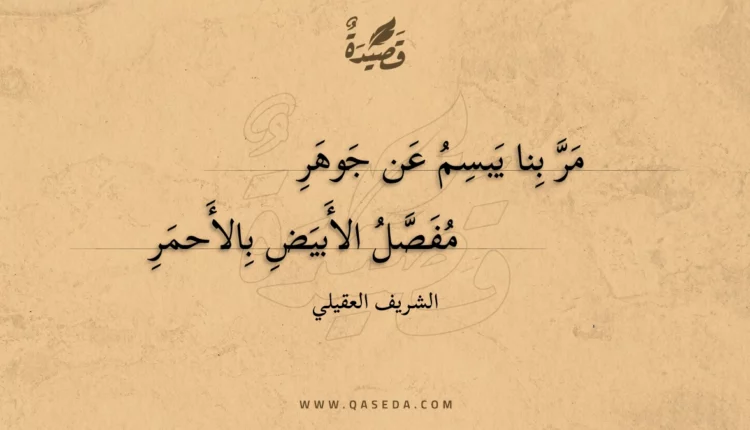 قَصِيْدَةٌ
مَرَّ بِنا يَبسِمُ عَن جَوهَرِ
مُفَصَّلُ الأَبيَضِ بِالأَحمَرِ
الشريف العقيلي
WWW.QASEDA.COM